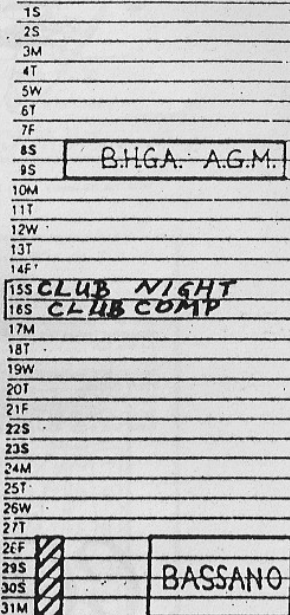 1S
2S
3M
4T
5W
6T
7F
8S B.H.G.A. A.G.M.
9S
10M
11T
12W
13T
14F
15S CLUB NIGHT
16S CLUB COMP
17M
18T
19W
20T
21F
22S
23S
24M
25T
26W
27T
28F
29S BASSANO
30S
31M